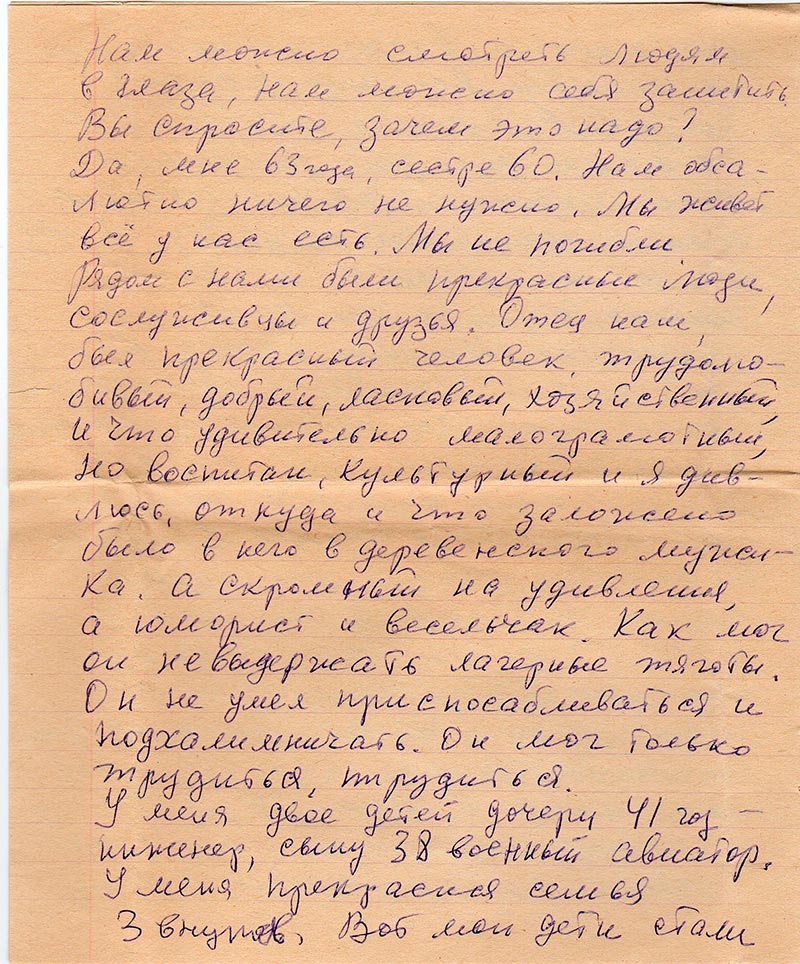 Нам можно смотреть людям
в глаза, нам можно себя защитить.
Вы спросите, зачем это надо?
Да, мне 63 года, сестре 60. Нам обса-
лютно ничего не нужно. Мы живет
всё у нас есть. Мы не погибли
Рядом с нами были прекрасные люди,
сослуживцы и друзья. Отец нам,
был прекрасный человек, трудолю-
бивый, добрый, ласковый, хозяйственный,
И что удивительно малограмотный,
но воспитан, культурный и я див-
люсь, откуда и что заложено
было в него в деревенского мужи-
ка. А скромный на удивления,
а юморист и весельчак. Как мог
он невыдержать лагерные тяготы.
Он не умел приспосабливаться и
подхалимничать. Он мог только
трудиться, трудиться.
У меня двое детей дочери 41 год –
инженер, сыну 38 военный авиатор.
У меня прекрасня семья
3 внуков. Вот мои дети стали